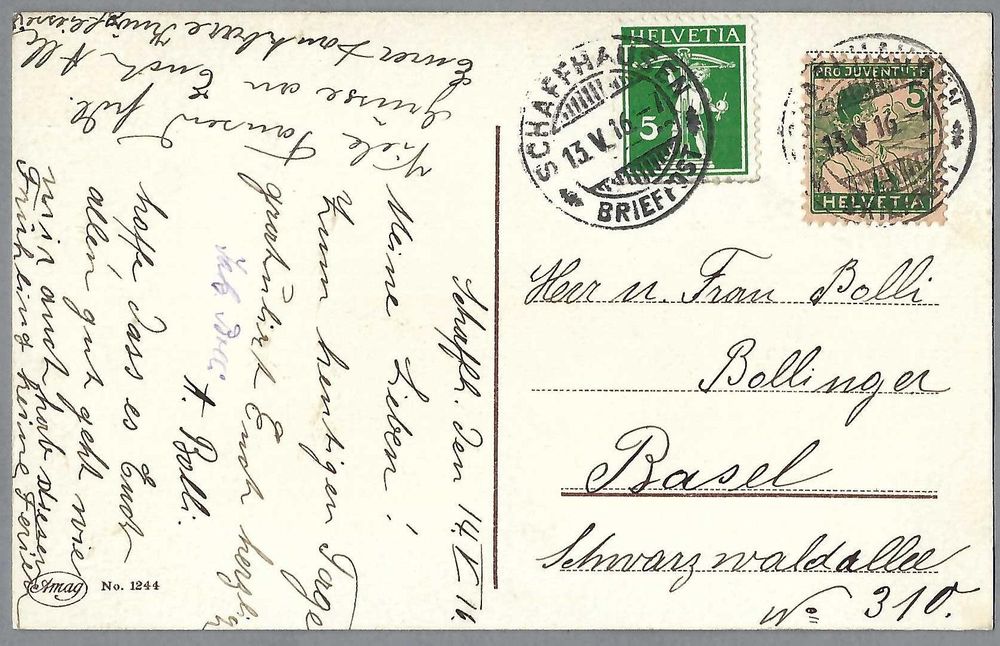 Schaffh. den 14. V. 16
Meine Lieben!
Zum heutigen Tage
gratuliert Euch herzlich
A. Bolli.
hoffe dass es Euch
allen gut geht wie
mir auch, hab diesen
Frühling keine Ferien
Viele Tausend
Grüsse an Euch All
Eurer dankbare
HELVETIA
5
SCHAFFHAUSEN
13.V.16
BRIEFPOST
PRO JUVENTUTE
5
HELVETIA
SCHAFFHAUSEN
13.V.16
BRIEFPOST
Herr u. Frau Bolli
Bollinger
Basel
Schwarzwaldallee
No 310.
Amag No. 1244